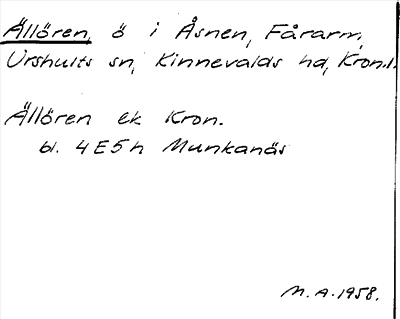 Ällören, ö i Åsnen, Fårarm,
Urshults sn, Kinnevalds hd, Kron.l.
Ällören ek Kron.
bl. 4E5h Munkanäs
M.A. 1958.